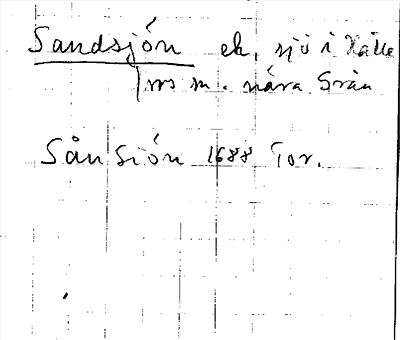 Sandsjön ek. sjö i Källe
frs sn. nära Grån
Sån siön 1688 Tor.